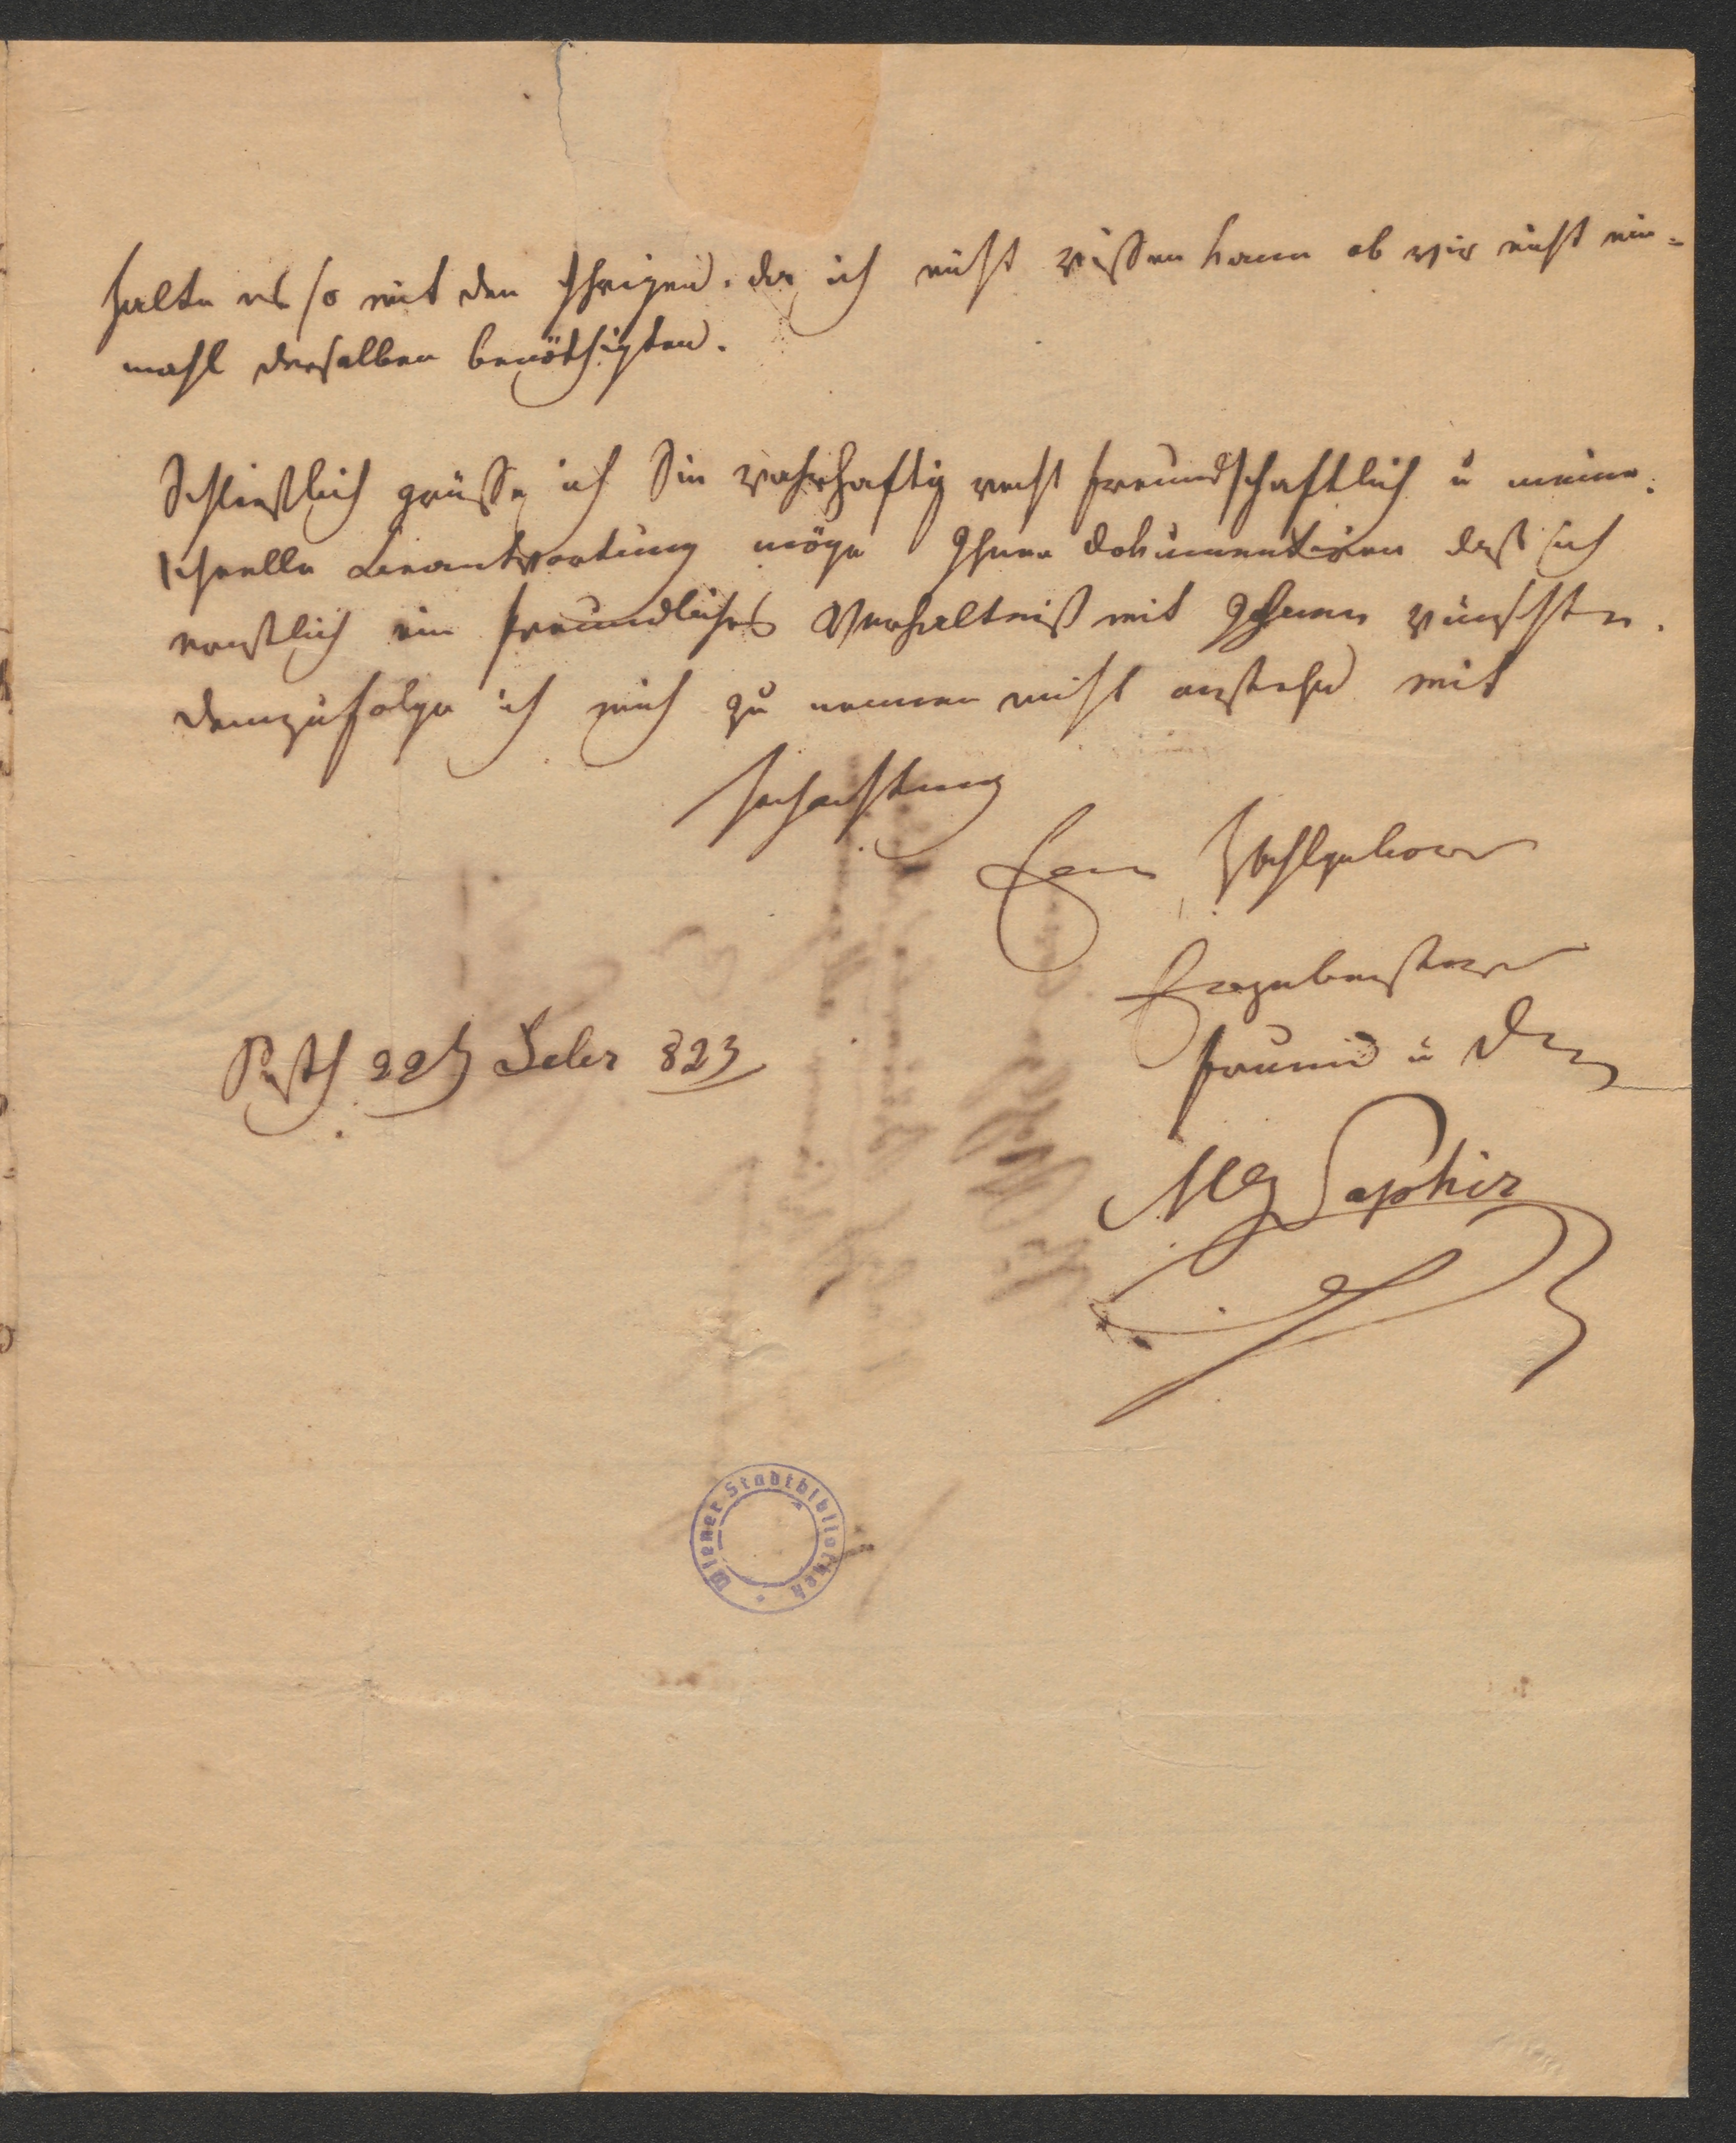 halte es so mit den Ihrigen. da ich nicht wissen kann ob wir nicht ein=
mahl derselben benöthigten.
Schließlich grüsse ich Sie wahrhaftig recht freundschaftlich u meine
schnelle Beantwortung möge Ihnen dokumentiren daß ich
ernstlich ein freundliches Verhältniß mit Ihnen wünschte.
demzufolge ich mich zu nennen nicht anstehe mit
Hochachtung
Euer Wohlgeboren
Ergebenster
Freund u
Pesth 22 823
MG Saphir
Wiener Stadtbibliothek